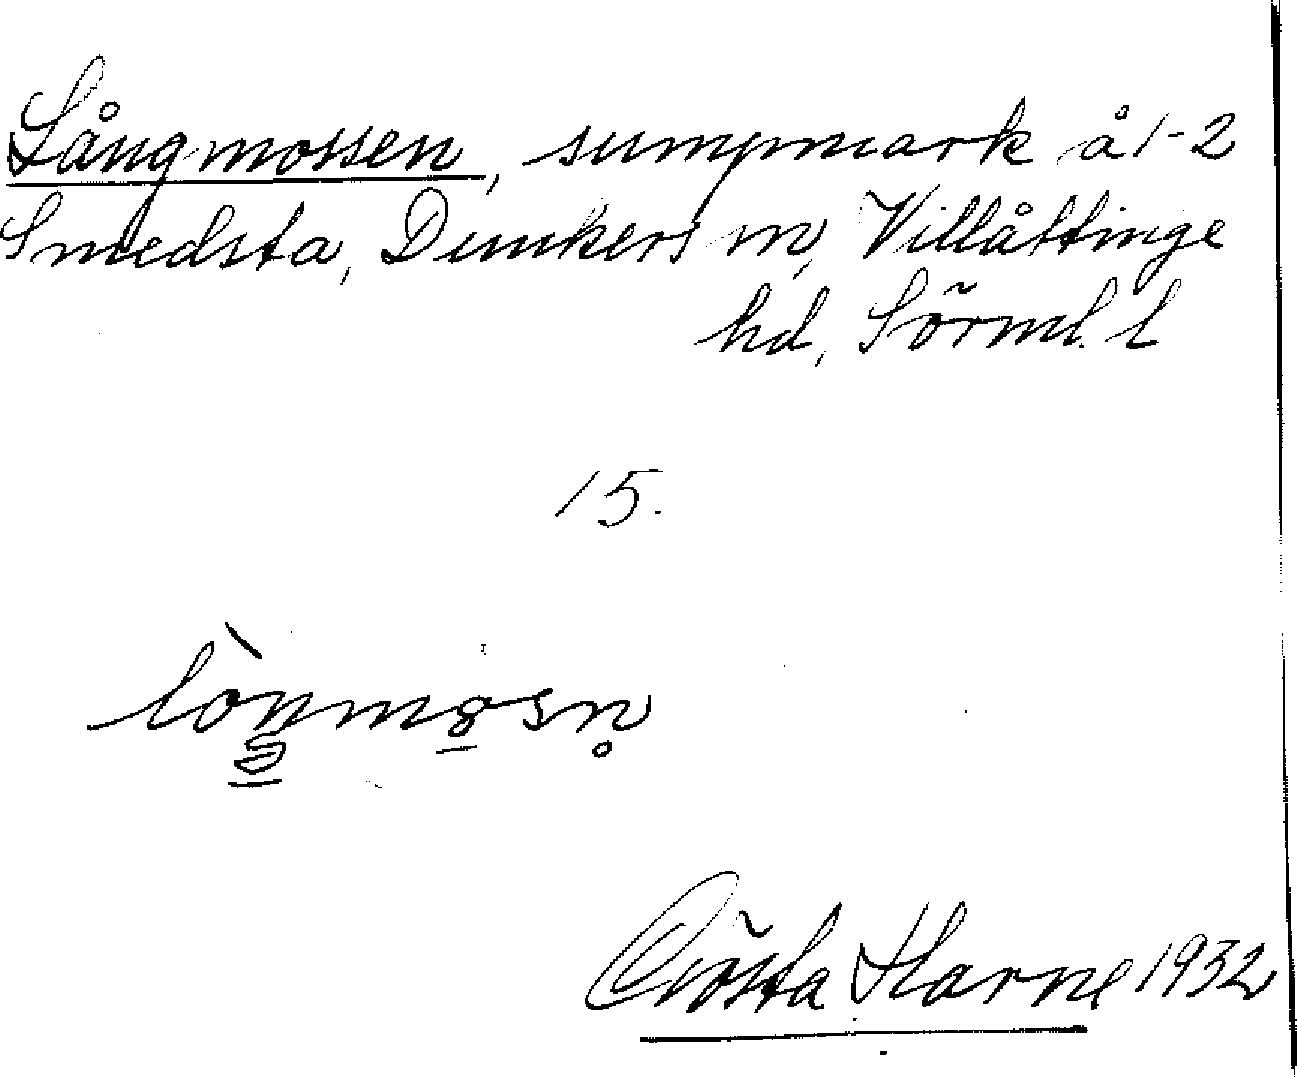 Långmossen, sumpmark å 1-2
Smedsta, Dunkers sn, Villåttinge
hd, Sörml. l
15.
Gösta Harne 1932